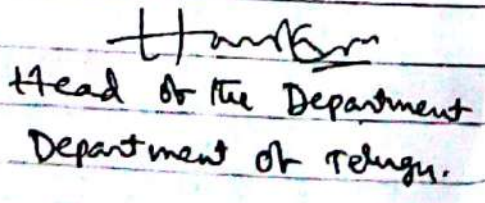 Head of the Department
Department of Telugu.